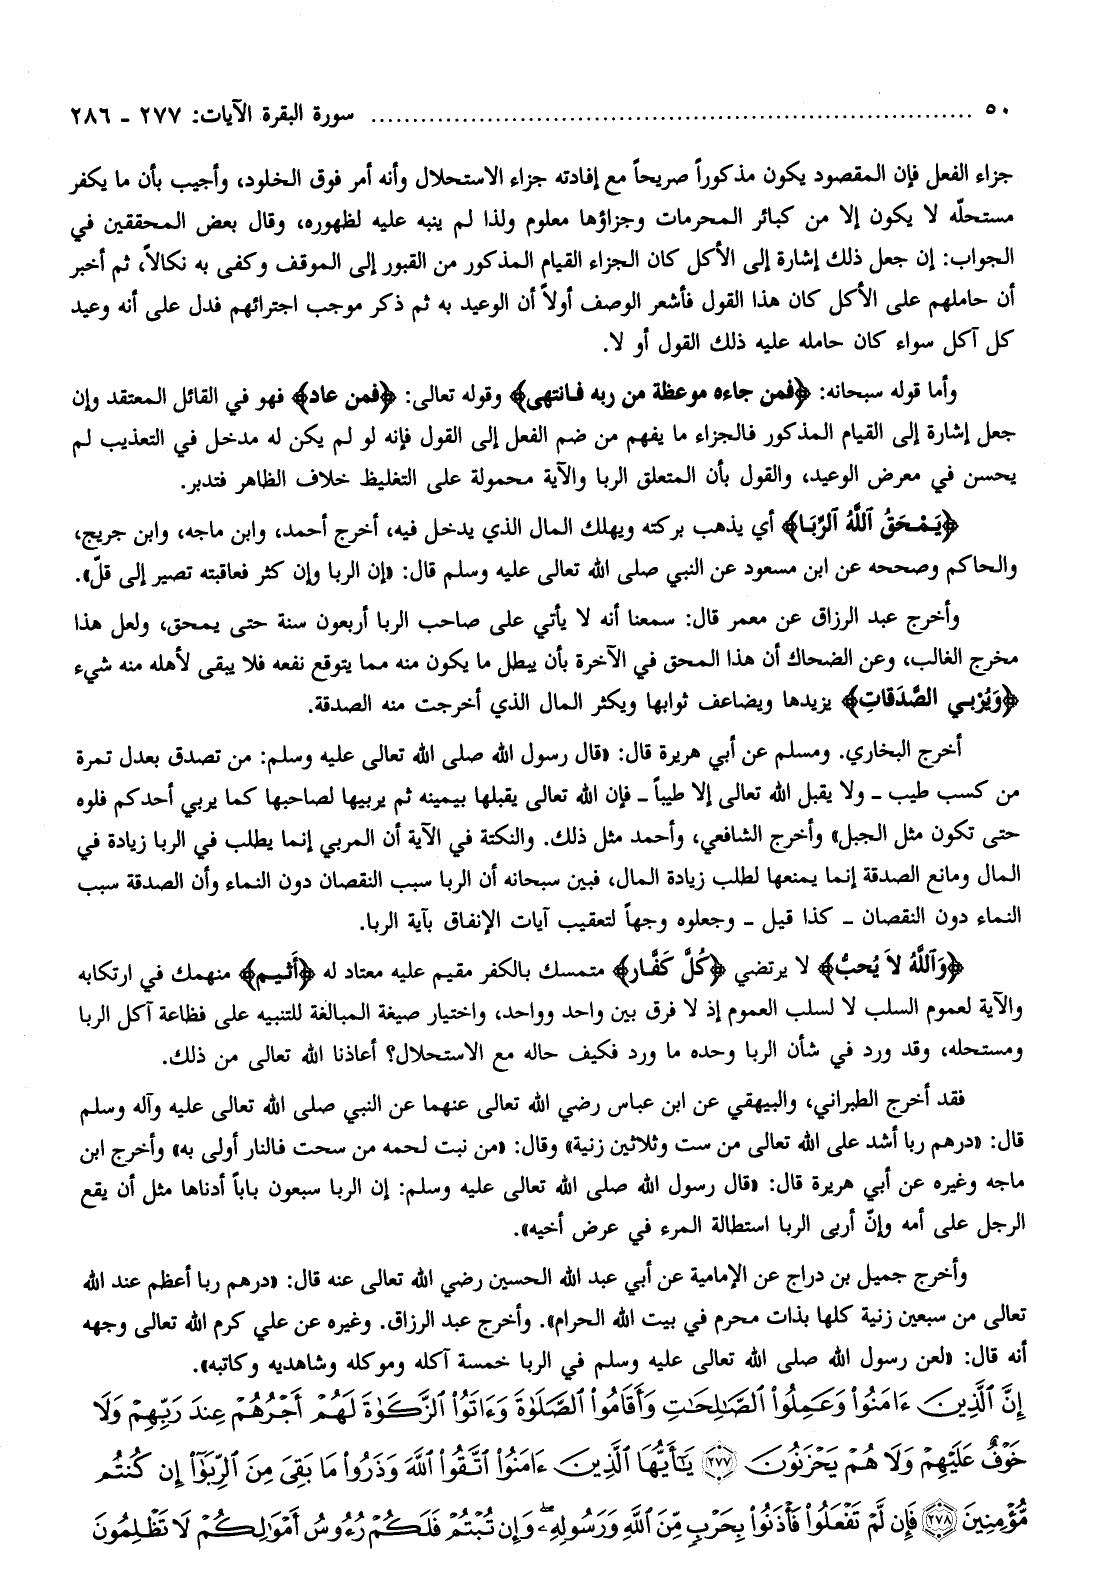 ٥٠ ........................................................................ سورة البقرة الآيات: ٢٧٧ ـ ٢٨٦
جزاء الفعل فإن المقصود يكون مذكوراً صريحاً مع إفادته جزاء الاستحلال وأنه أمر فوق الخلود، وأجيب بأن ما يكفر
مستحلّه لا يكون إلا من كبائر المحرمات وجزاؤها معلوم ولذا لم ينبه عليه لظهوره، وقال بعض المحققين في
الجواب: إن جعل ذلك إشارة إلى الأكل كان الجزاء القيام المذكور من القبور إلى الموقف وكفى به نكالاً، ثم أخبر
أن حاملهم على الأكل كان هذا القول فأشعر الوصف أولاً أن الوعيد به ثم ذكر موجب اجترائهم فدل على أنه وعيد
كل آكل سواء كان حامله عليه ذلك القول أو لا.
وأما قوله سبحانه: ﴿فمن جاءه موعظة من ربه فانتهى﴾ وقوله تعالى: ﴿فمن عاد﴾ فهو في القائل المعتقد وإن
جعل إشارة إلى القيام المذكور فالجزاء ما يفهم من ضم الفعل إلى القول فإنه لو لم يكن له مدخل في التعذيب لم
يحسن في معرض الوعيد، والقول بأن المتعلق الربا والآية محمولة على التغليظ خلاف الظاهر فتدبر.
﴿يَمْحَقُ ٱللَّهُ ٱلرِّبَا﴾ أي يذهب بركته ويهلك المال الذي يدخل فيه، أخرج أحمد، وابن ماجه، وابن جريج،
والحاكم وصححه عن ابن مسعود عن النبي صلى الله تعالى عليه وسلم قال: «إن الربا وإن كثر فعاقبته تصير إلى قلّ».
وأخرج عبد الرزاق عن معمر قال: سمعنا أنه لا يأتي على صاحب الربا أربعون سنة حتى يمحق، ولعل هذا
مخرج الغالب، وعن الضحاك أن هذا المحق في الآخرة بأن يبطل ما يكون منه مما يتوقع نفعه فلا يبقى لأهله منه شيء
﴿وَيُرْبِي الصَّدَقاتِ﴾ يزيدها ويضاعف ثوابها ويكثر المال الذي أخرجت منه الصدقة.
أخرج البخاري. ومسلم عن أبي هريرة قال: «قال رسول الله صلى الله تعالى عليه وسلم: من تصدق بعدل تمرة
من كسب طيب ـ ولا يقبل الله تعالى إلا طيباً ـ فإن الله تعالى يقبلها بيمينه ثم يربيها لصاحبها كما يربي أحدكم فلوه
حتى تكون مثل الجبل» وأخرج الشافعي، وأحمد مثل ذلك. والنكتة في الآية أن المربي إنما يطلب في الربا زيادة في
المال ومانع الصدقة إنما يمنعها لطلب زيادة المال، فبين سبحانه أن الربا سبب النقصان دون النماء وأن الصدقة سبب
النماء دون النقصان ـ كذا قيل ـ وجعلوه وجهاً لتعقيب آيات الإنفاق بآية الربا.
﴿وَٱللَّهُ لاَ يُحبُّ﴾ لا يرتضي ﴿كُلَّ كَفَّار﴾ متمسك بالكفر مقيم عليه معتاد له ﴿أَثيم﴾ منهمك في ارتكابه
والآية لعموم السلب لا لسلب العموم إذ لا فرق بين واحد وواحد، واختيار صيغة المبالغة للتنبيه على فظاعة آكل الربا
ومستحله، وقد ورد في شأن الربا وحده ما ورد فكيف حاله مع الاستحلال؟ أعاذنا الله تعالى من ذلك.
فقد أخرج الطبراني، والبيهقي عن ابن عباس رضي الله تعالى عنهما عن النبي صلى الله تعالى عليه وآله وسلم
قال: «درهم ربا أشد على الله تعالى من ست وثلاثين زنية» وقال: «من نبت لحمه من سحت فالنار أولى به» وأخرج ابن
ماجه وغيره عن أبي هريرة قال: «قال رسول الله صلى الله تعالى عليه وسلم: إن الربا سبعون باباً أدناها مثل أن يقع
الرجل على أمه وإنّ أربى الربا استطالة المرء في عرض أخيه».
وأخرج جميل بن دراج عن الإمامية عن أبي عبد الله الحسين رضي الله تعالى عنه قال: «درهم ربا أعظم عند الله
تعالى من سبعين زنية كلها بذات محرم في بيت الله الحرام». وأخرج عبد الرزاق. وغيره عن علي كرم الله تعالى وجهه
أنه قال: «لعن رسول الله صلى الله تعالى عليه وسلم في الربا خمسة آكله وموكله وشاهديه وكاتبه».
إِنَّ ٱلَّذِينَ ءَامَنُوا۟ وَعَمِلُوا۟ ٱلصَّـٰلِحَـٰتِ وَأَقَامُوا۟ ٱلصَّلَوٰةَ وَءَاتَوُا۟ ٱلزَّكَوٰةَ لَهُمْ أَجْرُهُمْ عِندَ رَبِّهِمْ وَلَا
خَوْفٌ عَلَيْهِمْ وَلَا هُمْ يَحْزَنُونَ ﴿٢٧٧﴾ يَـٰٓأَيُّهَا ٱلَّذِينَ ءَامَنُوا۟ ٱتَّقُوا۟ ٱللَّهَ وَذَرُوا۟ مَا بَقِىَ مِنَ ٱلرِّبَوٰٓا۟ إِن كُنتُم
مُّؤْمِنِينَ ﴿٢٧٨﴾ فَإِن لَّمْ تَفْعَلُوا۟ فَأْذَنُوا۟ بِحَرْبٍ مِّنَ ٱللَّهِ وَرَسُولِهِۦ ۖ وَإِن تُبْتُمْ فَلَكُمْ رُءُوسُ أَمْوَٰلِكُمْ لَا تَظْلِمُونَ